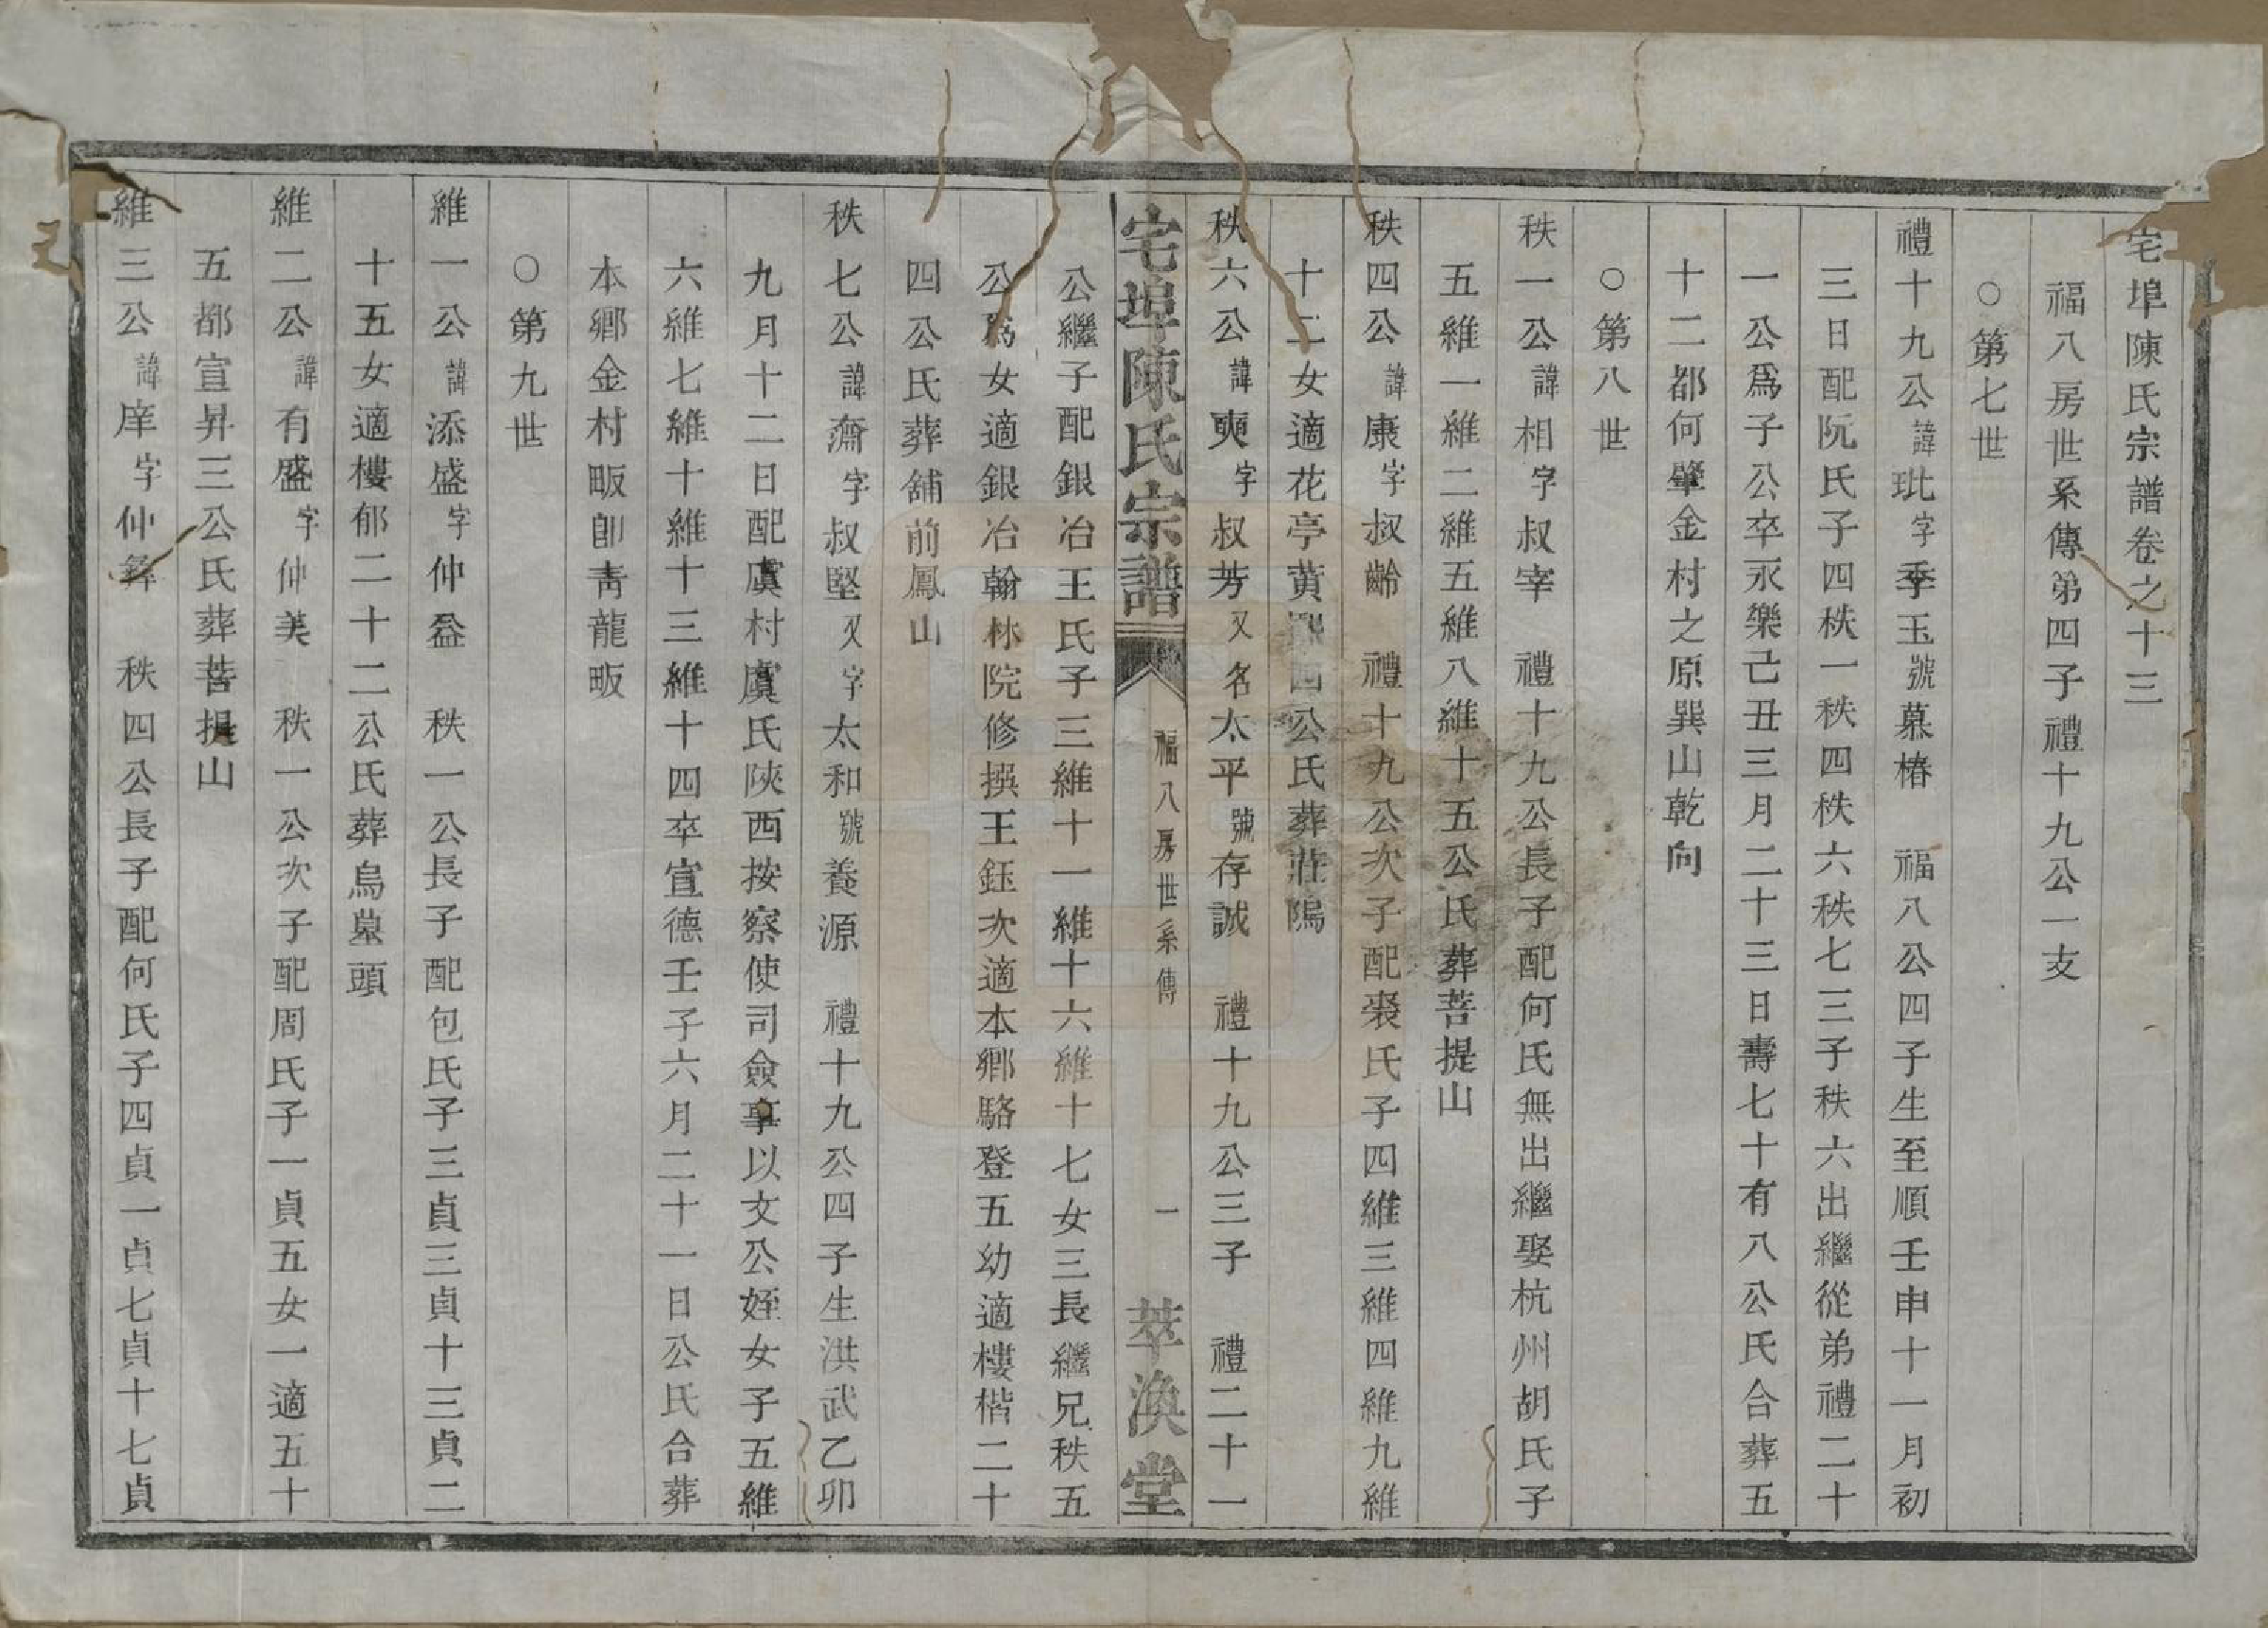 宅埠陳氏宗譜卷之十三
福八房世系傳弟四子禮十九公一支
○第七世
禮十九公諱玭字季玉號慕椿　福八公四子生至順壬申十一月初
三日配阮氏子四秩一秩四秩六秩七三子秩六出繼從弟禮二十
一公爲子公卒永樂己丑三月二十三日壽七十有八公氏合葬五
十二都何肇金村之原巽山乾向
○第八世
秩一公諱相字叔宰　禮十九公長子配何氏無出繼娶杭州胡氏子
五維一維二維五維八維十五公氏葬菩提山
秩四公諱康字叔齡　禮十九公次子配裘氏子四維三維四維九維
十二女適花亭黄四公氏葬莊隝
秩六公諱奭字叔芳又名太平號存誠　禮十九公三子　禮二十一
公繼子配銀冶王氏子三維十一維十六維十七女三長繼兄秩五
公爲女適銀冶翰林院修撰王鈺次適本鄉駱登五幼適樓楷二十
四公氏葬舖前鳳山
秩七公諱齋字叔堅又字太和號養源　禮十九公四子生洪武乙卯
九月十二日配虞村虞氏陝西按察使司僉事以文公姪女子五維
六維七維十維十三維十四卒宣德壬子六月二十一日公氏合葬
本鄉金村畈卽靑龍畈
○第九世
維一公諱添盛字仲益　秩一公長子配包氏子三貞三貞十三貞二
十五女適樓郁二十二公氏葬烏墓頭
維二公諱有盛字仲美　秩一公次子配周氏子一貞五女一適五十
五都宣昇三公氏葬菩提山
維三公諱庠字仲彝　秩四公長子配何氏子四貞一貞七貞十七貞
宅埠陳氏宗譜
福八房世系傳
一
萃渙堂